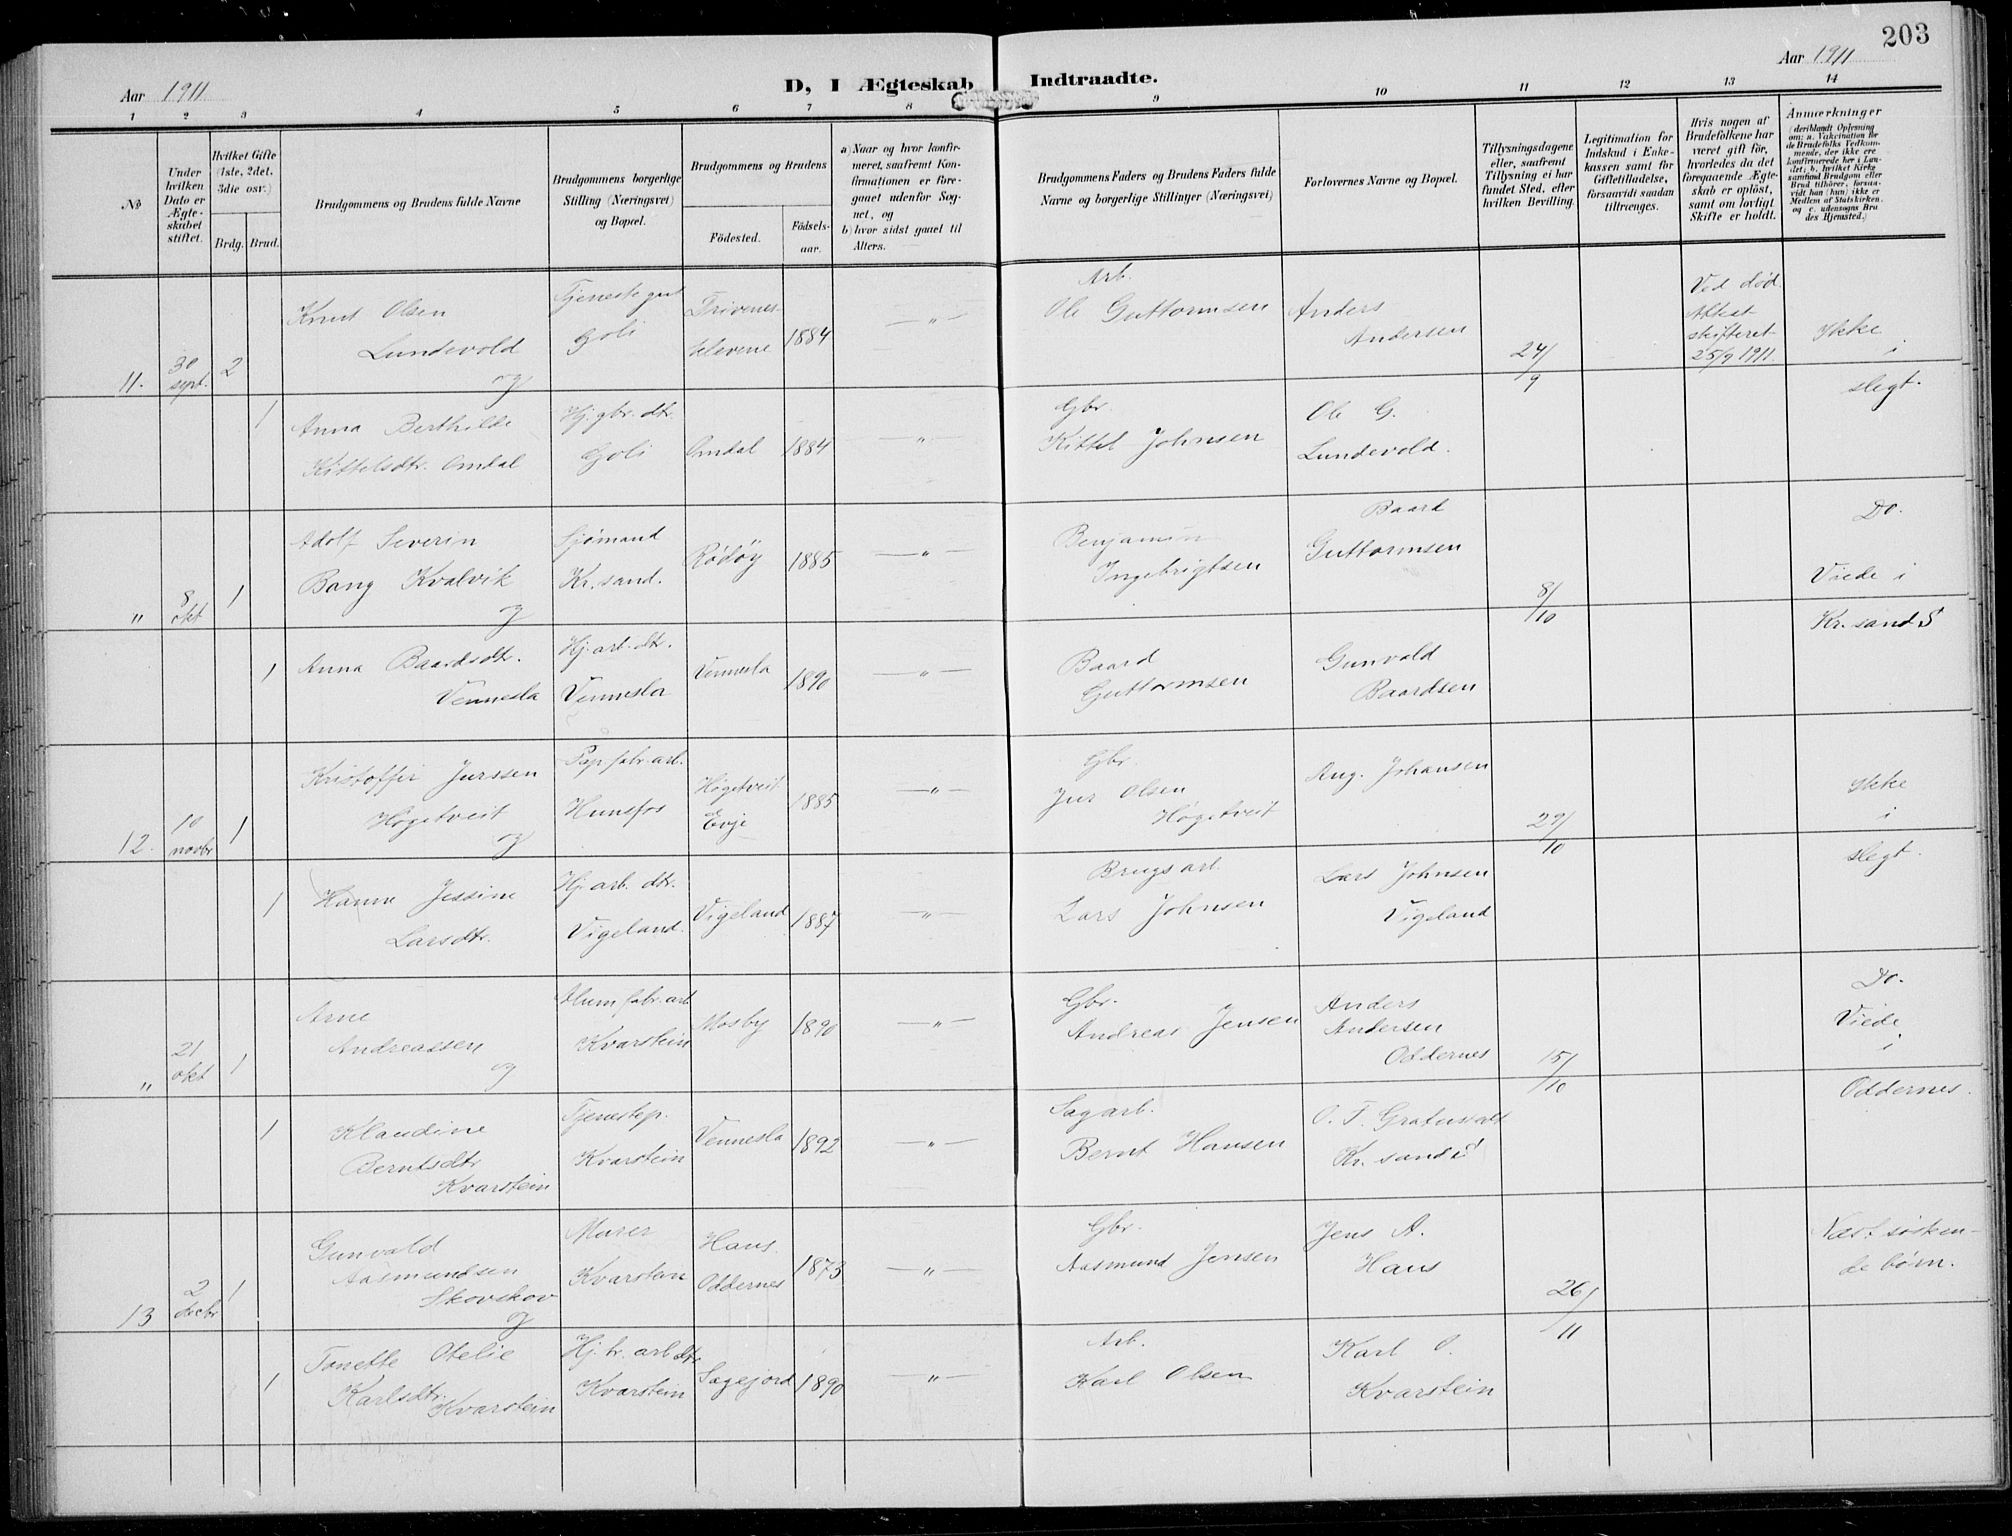 203
Aar 1911
D, I Ægteskab Indtraadte.
Aar 1911
1 2 3 4 5 6 7 8 9 10 11 12 13 14
№
Under hvilken Dato er Ægteskabet stiftet.
Hvilket Gifte (1ste, 2det, 3die osv.)
Brdg. Brud.
Brudgommens og Brudens fulde Navne
Brudgommens borgerlige Stilling (Næringsvei) og Bopæl.
Brudgommens og Brudens
Fødested.
Fødselsaar.
a) Naar og hvor konfirmeret, saafremt Konfirmationen er foregaaet udenfor Sognet, og
b) hvor sidst gaaet til Alters.
Brudgommens Faders og Brudens Faders fulde Navne og borgerlige Stillinger (Næringsvei)
Forlovernes Navne og Bopæl.
Tillysningsdagene eller, saafremt Tillysning ei har fundet Sted, efter hvilken Bevilling.
Legitimation for Indskud i Enkekassen samt for Giftetilladelse, forsaavidt saadan tiltrænges.
Hvis nogen af Brudefolkene har været gift før, hvorledes da det foregaaende Ægteskab er opløst, samt om lovligt Skifte er holdt.
Anmærkninger
(deriblandt Oplysning om: a. Vakcination for de Brudefolks Vedkommende, der ikke ere konfirmerede her i Landet; b. hvilket Kirkesamfund Brudgom eller Brud tilhører, forsaavidt han (hun) ikke er Medlem af Statskirken. og c. udensogns Brudes Hjemsted.)
11. 30 sept. 2
Knut Olsen
Lundevold
og
Tjenestegut
Goli
Trivenes
Klevene
1884
— " —
Arb.
Ole Guttormsen
Anders
Andersen
24/9
Ved død.
Attest
skifteret
25/9 1911
Ikke
i
slegt.
1
Anna Berthilde
Kittelsdtr. Omdal
Hj. gbr. dtr.
Goli
Omdal
1884
— " —
Gbr.
Kittel Johnsen
Ole G.
Lundevold.
" 8 okt 1
Adolf Severin
Bang Kvalvik
og
Sjømand
Kr.sand.
Rødøy
1885
— " —
Benjamin
Ingebrigtsen
Baard
Guttormsen
8/10
Do.
Viede i
Kr.sand S
1
Anna Baardsdtr.
Vennesla
Hj. arb. dtr.
Vennesla
Vennesla
1890
— " —
Baard
Guttormsen
Gunvald
Baardsen
12. 10 novbr 1
Kristoffer Jurssen
Høgetveit
og
Pap. fabr. arb.
Hunsfos
Høgetveit
Evje
1885
— " —
Gbr.
Jur Olsen
Høgetveit
Aug. Johansen
29/10
Ikke
i
slegt.
1
Hanna Jessine
Larsdtr.
Hj. arb. dtr.
Vigeland.
Vigeland
1887
— " —
Brugs arb.
Lars Johnsen
Lars Johnsen
Vigeland
" 21 okt 1
Arne
Andreassen
og
Alum. fabr. arb
Kvarstein
Mosby
1890
— " —
Gbr.
Andreas Jensen
Anders
Andersen
Oddernes
15/10
Do.
Viede
i
Oddernes.
1
Klaudine
Berntsdtr
Kvarstein
Tjenestep.
Kvarstein
Vennesla
1892
— " —
Sagarb.
Bernt Hansen
O. T.
Kr. sand
13 2 decbr 1
Gunvald
Aasmundsen
Skovskov
og
Murer
Kvarstein
Haus.
Oddernes
1873
— " —
Gbr.
Aasmund Jensen
Jens A.
Haus
26/11
Næst søsken-
de børn.
1
Tonette Otelie
Karlsdtr.
Kvarstein
Hj. br. arb. dtr
Kvarstein
Sagejord
1890
— " —
Arb.
Karl Olsen
Karl O.
Kvarstein